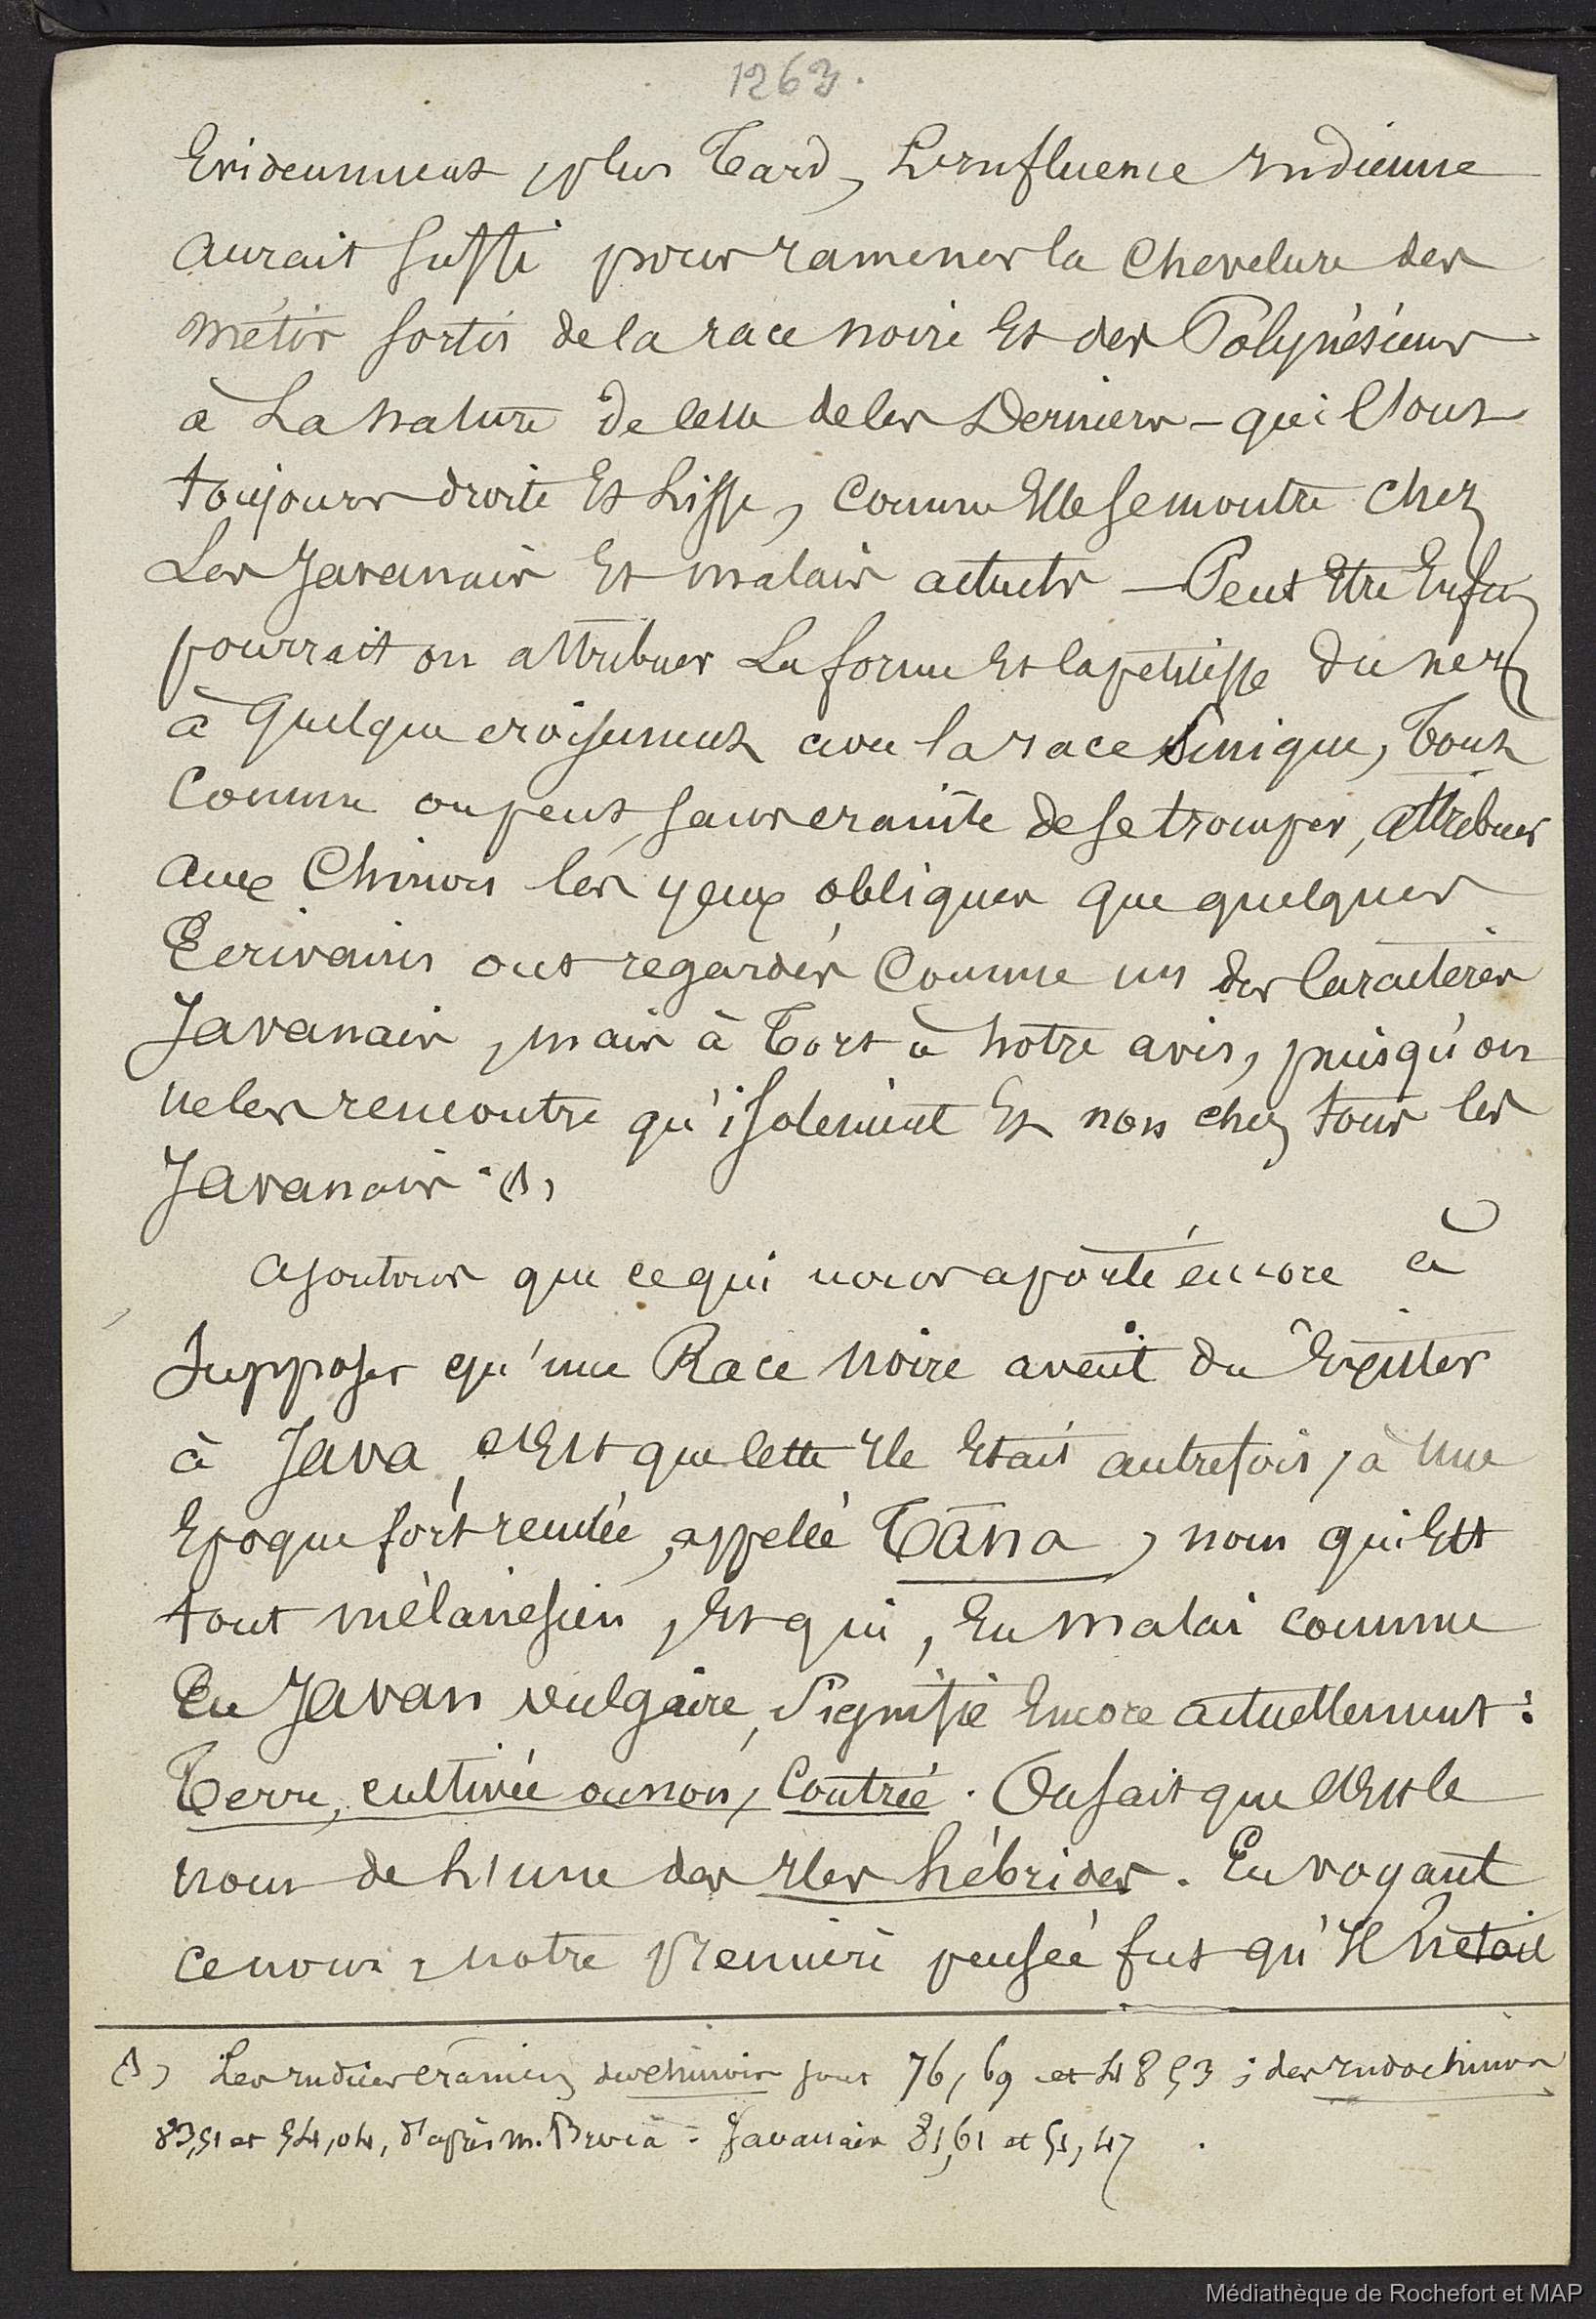 1263.
Evidemment, plus Tard, L'influence Indienne
aurait suffi pour ramener la chevelure des
métis sortis de la race noire Et des Polynésiens
à La nature de celle de ces Derniers - qui l'ont
toujours droite Et Lisse, comme Elle se montre chez
Les Javanais Et malais actuels - Peut Etre Enfin
pourrait on attribuer La forme Et la petitesse du nez
à quelque croisement avec la race Sinique, Tout
Comme on peut, sans crainte de se tromper, attribuer
aux Chinois les yeux obliques que quelques
Ecrivains ont regardés Comme un des Caractères
Javanais, mais à Tort à notre avis, puisqu'on
ne les rencontre qu'isolément Et non chez tous les
Javanais. (1)
ajoutons que ce qui nous a porté encore à
Supposer qu'une Race noire avait du Exister
à Java, c'Est que cette Ile Etait autrefois, à une
Epoque fort reculée, appelée Tana, nom qui Est
tout mélanésien, Et qui, En malai comme
En Javan vulgaire, Signifie Encore actuellement :
Terre, cultivée ou non, Contrée. On sait que c'Est le
nom de L'une des Iles hébrides. En voyant
ce nom, notre Première pensée fut qu'Il n'était
(1) Les Indices crâniens des chinois sont 76,69 et 48 53 ; des Indochinois
83,51 et 54,04, d'après M. Broca = Javanais 81,61 et 51,47.
Médiathèque de Rochefort et MAP